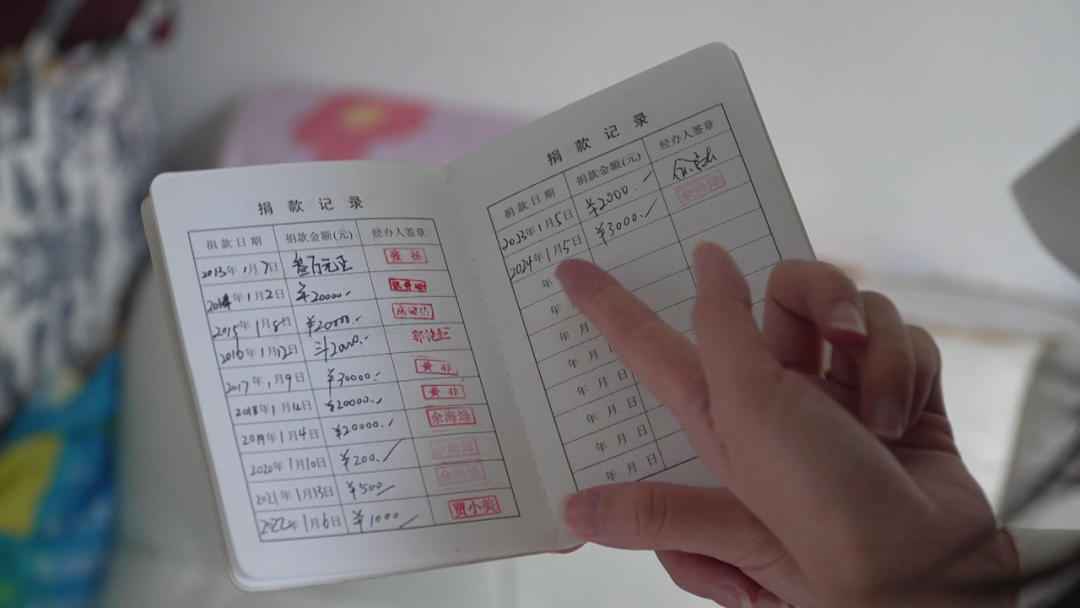 捐款记录
捐款日期 捐款金额(元) 经办人签章
2013年1月7日 叁百元正 张杨
2014年1月2日 ¥20000.
2015年1月8日 ¥20000.
2016年1月12日 2000.
2017年1月9日 ¥30000. 黄非
2018年1月12日 ¥20000. 黄非
2019年1月4日 ¥20000. 余海烽
2020年1月10日 ¥200. 余海烽
2021年1月13日 ¥500 余海烽
2022年1月6日 ¥1000 贾小英
捐款记录
捐款日期 捐款金额(元) 经办人签章
2023年1月5日 ¥2000.
2024年1月5日 ¥3000. 余海烽
年
年
年 月
年 月 日
年 月 日
年 月 日
年 月 日
年 月 日